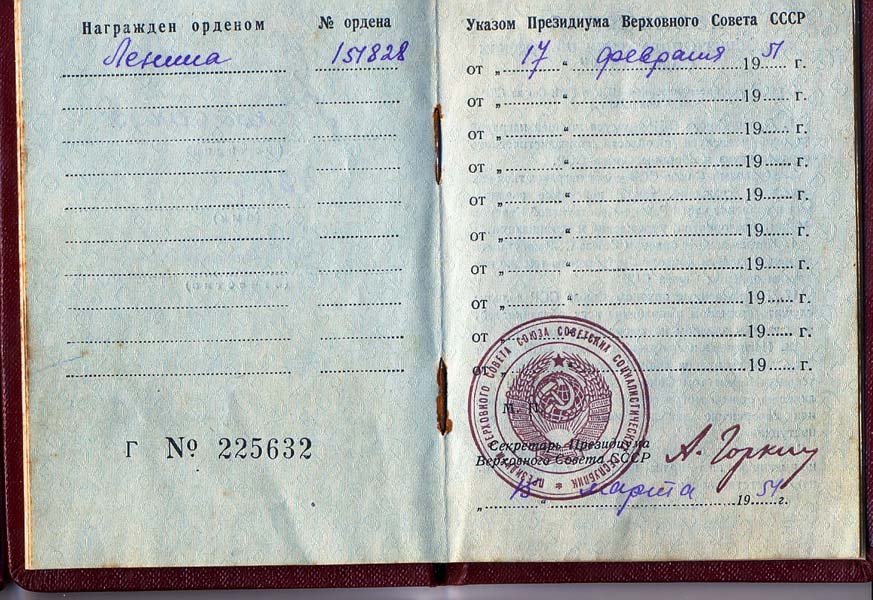 Награжден орденом № ордена
Ленина 151828
Г № 225632
Указом Президиума Верховного Совета СССР
от „ 17 “ февраля 1951 г.
от „ “ 19 г.
от „ “ 19 г.
от „ “ 19 г.
от „ “ 19 г.
от „ “ 19 г.
от „ “ 19 г.
от „ “ 19 г.
от „ “ 19 г.
от „ “ 19 г.
ПРЕЗИДИУМ ВЕРХОВНОГО СОВЕТА СОЮЗА СОВЕТСКИХ СОЦИАЛИСТИЧЕСКИХ РЕСПУБЛИК
М. П.
Секретарь Президиума
Верховного Совета СССР А. Горкин
„ 13 “ марта 1951 г.